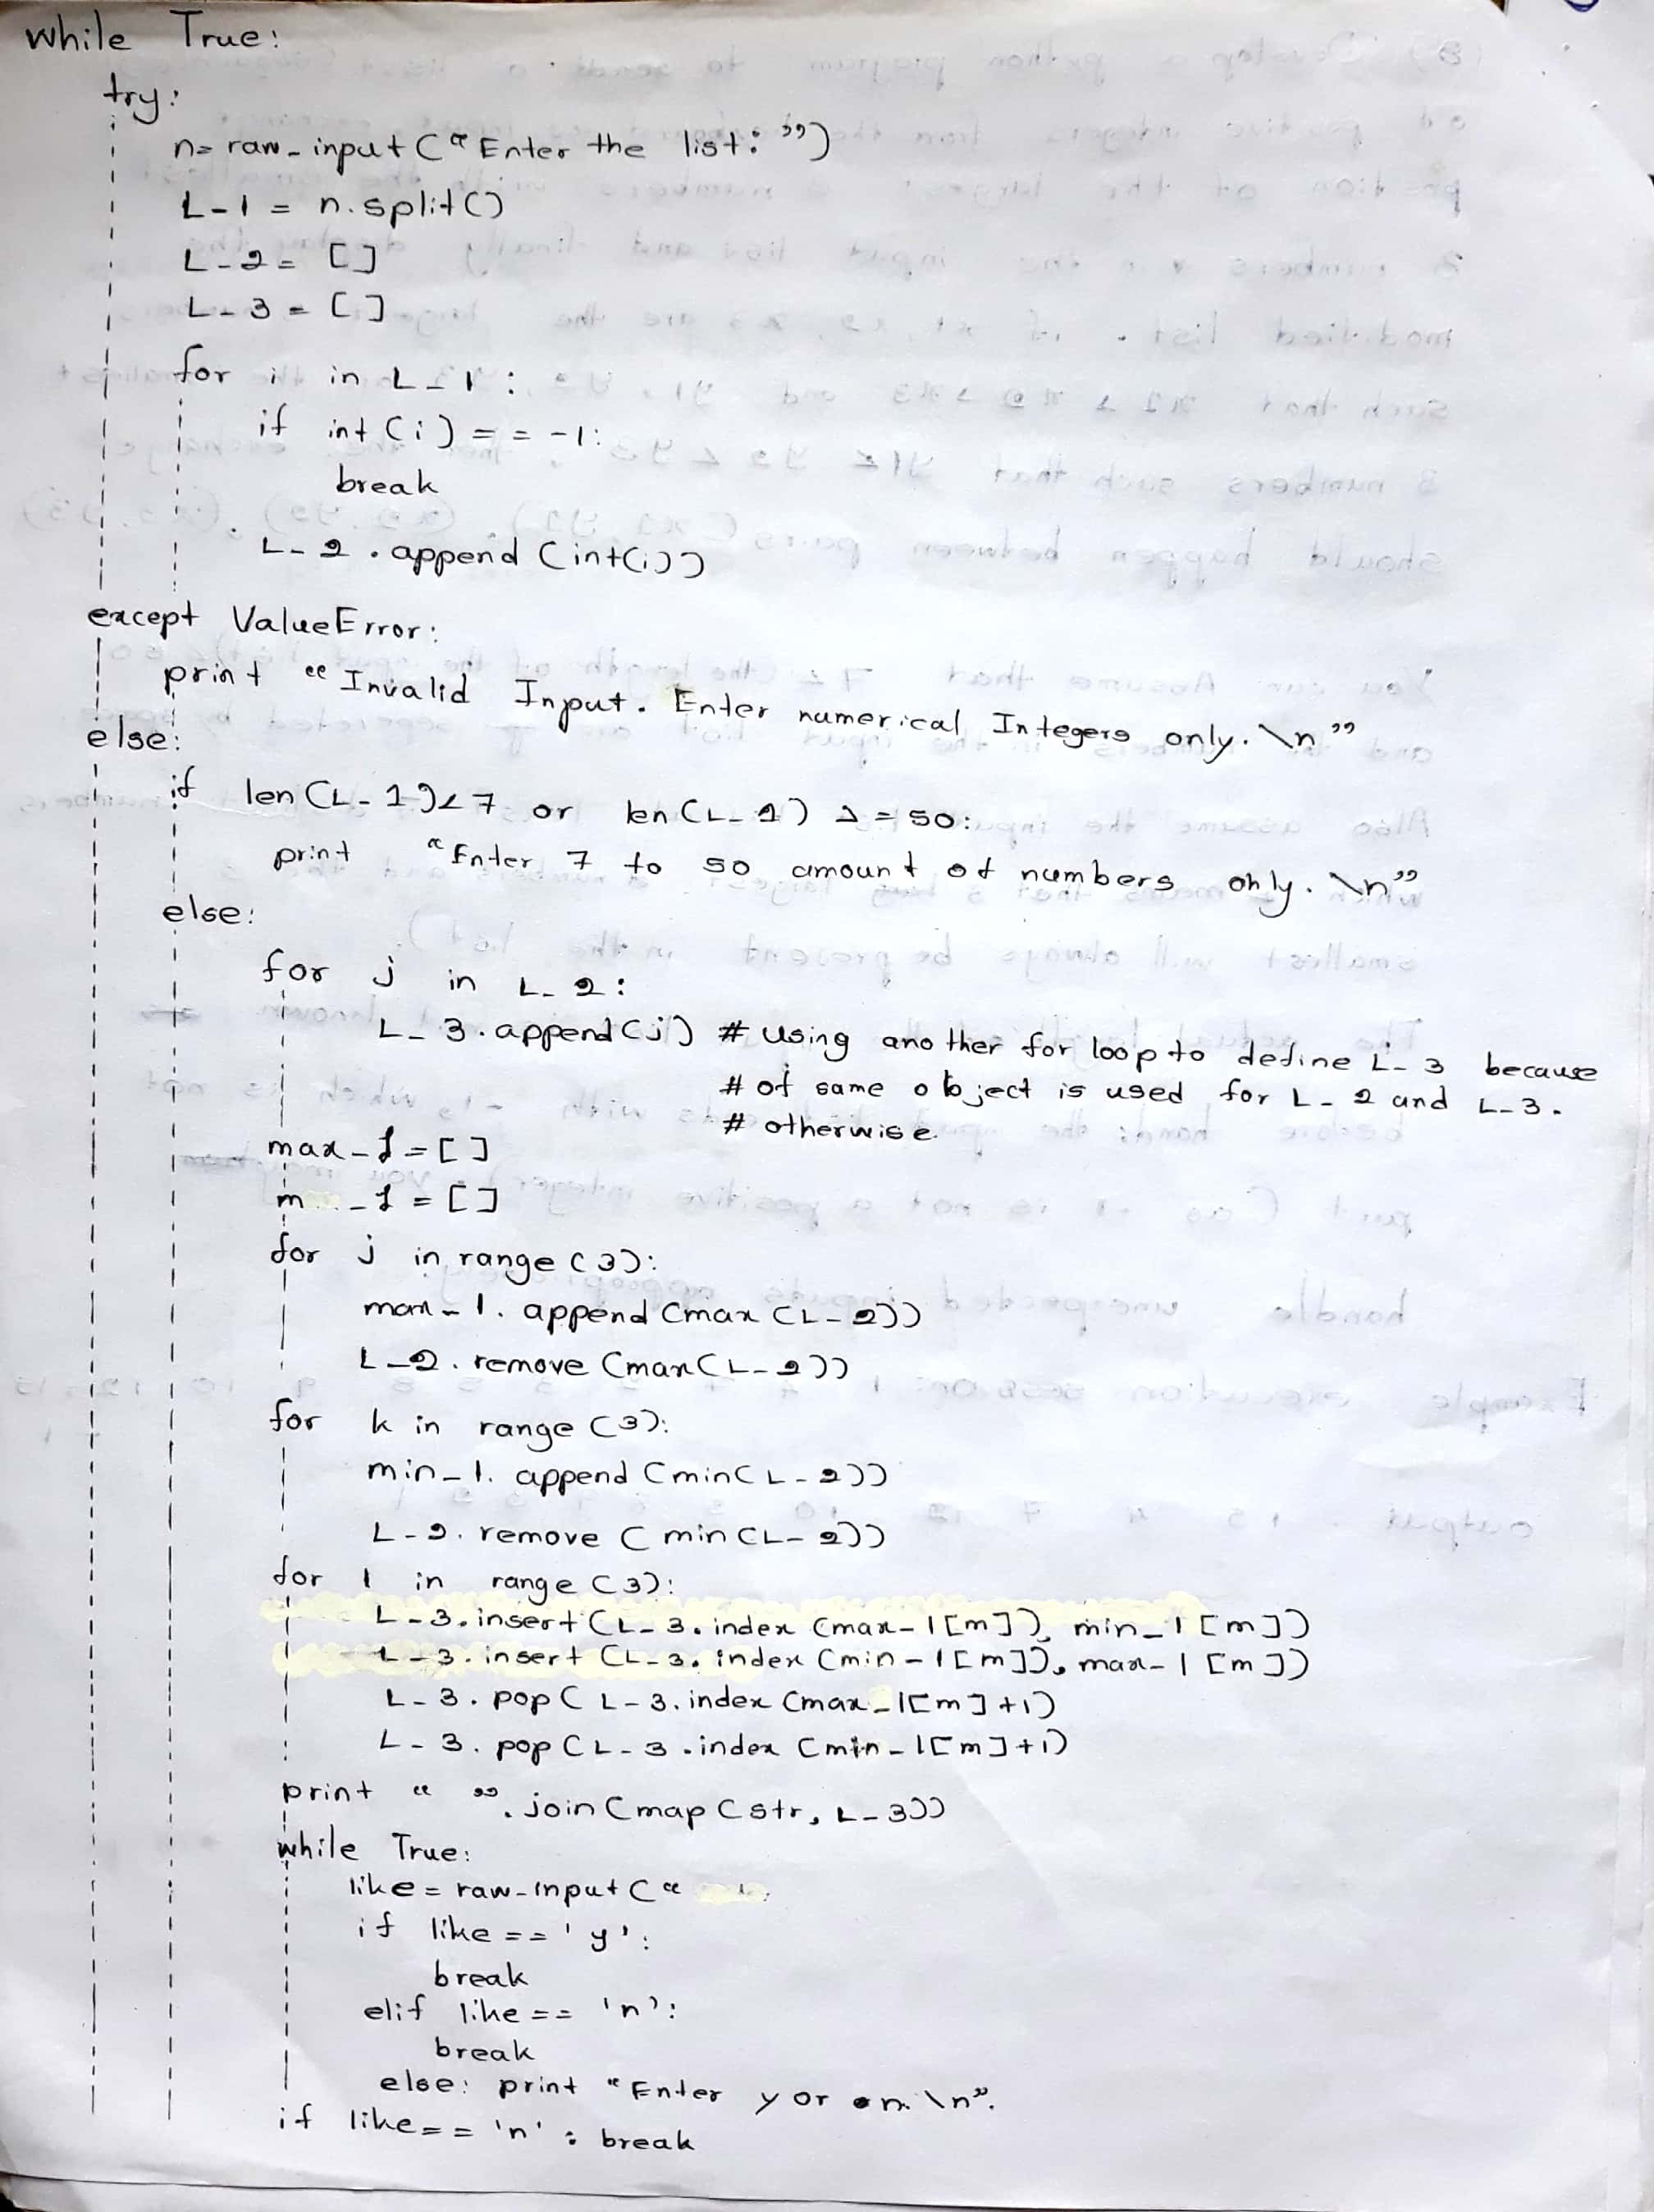 while True:
try:
n= raw_input ("Enter the list: ")
L_1 = n.split()
L_2 = []
L_3 = []
for i in L_1 :
if int (i) == -1:
break
L_2 . append (int(i))
except ValueError:
print "Invalid Input. Enter numerical Integers only. \n"
else:
if len (L_1)<7 or len (L_1) >= 50:
print "Enter 7 to 50 amount of numbers only. \n"
else:
for j in L_2 :
L_3 . append (j) # using another for loop to define L_3 because
# of same object is used for L_2 and L_3 .
# otherwise.
max_1 = []
m _1 = []
for j in range (3):
max_1. append (max (L_2))
L_2. remove (max(L_2))
for k in range (3):
min_1. append (min(L_2))
L_2. remove (min (L_2))
for l in range (3):
L_3. insert (L_3. index (max_1[m]), min_1[m])
L_3. insert (L_3. index (min_1[m]), max_1[m])
L_3. pop ( L_3. index (max_1[m]+1)
L_3. pop (L_3 . index (min_1[m]+1)
print " ". join (map (str, L_3))
while True:
like = raw_input ("
if like == 'y' :
break
elif like == 'n' :
break
else: print "Enter y or n. \n".
if like == 'n' : break